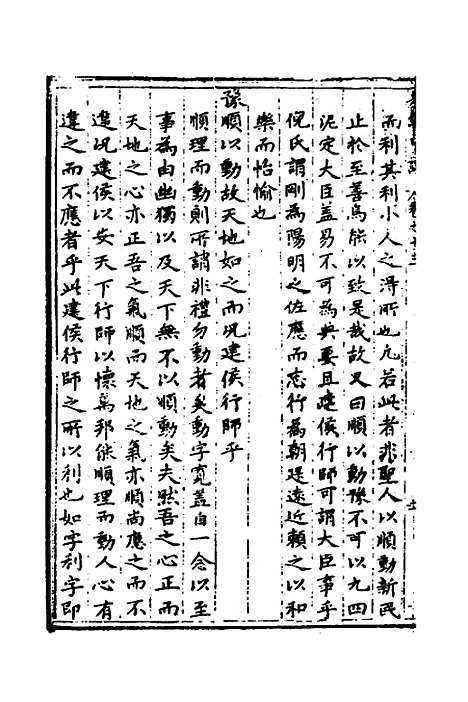 而利其利小人之得所也凡若此者非聖人以順動新民
止於至善烏能以致是哉故又曰順以動豫不可以九四
泥定大臣蓋易不可為典要且建侯行師可謂大臣事乎
倪氏謂剛為陽明之佐應而志行為朝廷遠近賴之以和
樂而怡愉也
豫順以動故天地如之而况建侯行師乎
順理而動則所謂非禮勿動者矣動字寬蓋自一念以至
事為由幽獨以及天下無不以順動矣夫然吾之心正而
天地之心亦正吾之氣順而天地之氣亦順尚應之而不
違况建侯以安天下行師以懷萬邦能順理而動人心有
違之而不應者乎此建侯行師之所以利也如字利字即